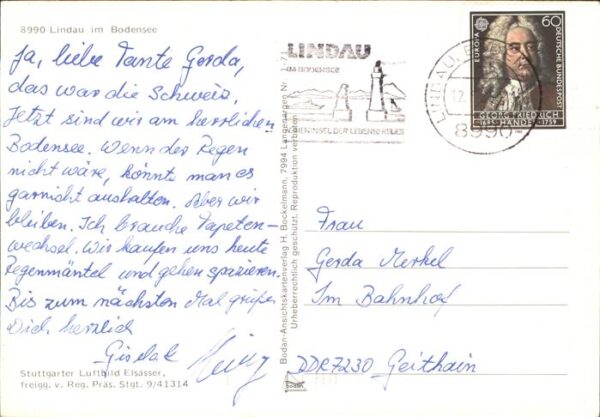 8990 Lindau im Bodensee
Ja, liebe Tante Gerda,
das war die Schweiz,
Jetzt sind wir am herrlichen
Bodensee. Wenn der Regen
nicht wäre, könnte man es
garnicht aushalten. Aber wir
bleiben. Ich brauche Tapeten-
wechsel. Wir kaufen uns heute
Regenmäntel und gehen spazieren.
Bis zum nächsten Mal grüßen
Dich herzlich
Stuttgarter Luftbild Elsässer,
freigg. v. Reg. Präs. Stgt. 9/41314
Bodan-Ansichtskartenverlag H. Bockelmann, 7994 Langenargen Nr.
Urheberrechtlich geschützt, Reproduktion verboten
LINDAU
IM BODENSEE
LINDAU,
12.
8990
EUROPA
60
DEUTSCHE BUNDESPOST
GEORG FRIEDRICH
1685 HÄNDEL 1759
Frau
Gerda Merkel
Im Bahnhof
DDR 7230 Geithain